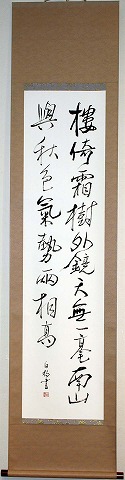 樓倚霜樹外鏡天無一毫南山
與秋色氣勢兩相高
白楊書